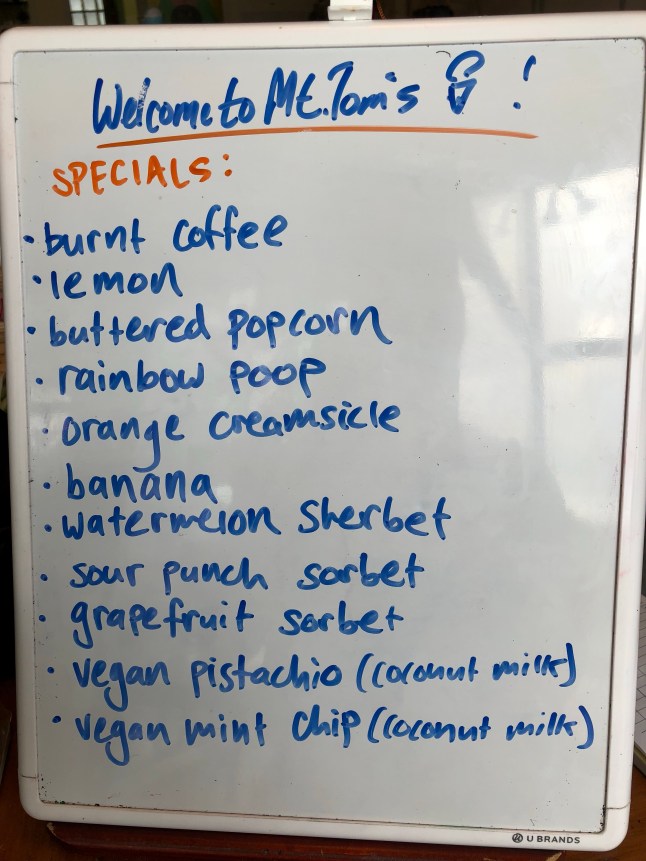 Welcome to Mt. Tom's !
SPECIALS:
• burnt coffee
• lemon
• buttered popcorn
• rainbow poop
• orange creamsicle
• banana
• watermelon sherbet
• sour punch sorbet
• grapefruit sorbet
• vegan pistachio (coconut milk)
• vegan mint chip (coconut milk)
U BRANDS